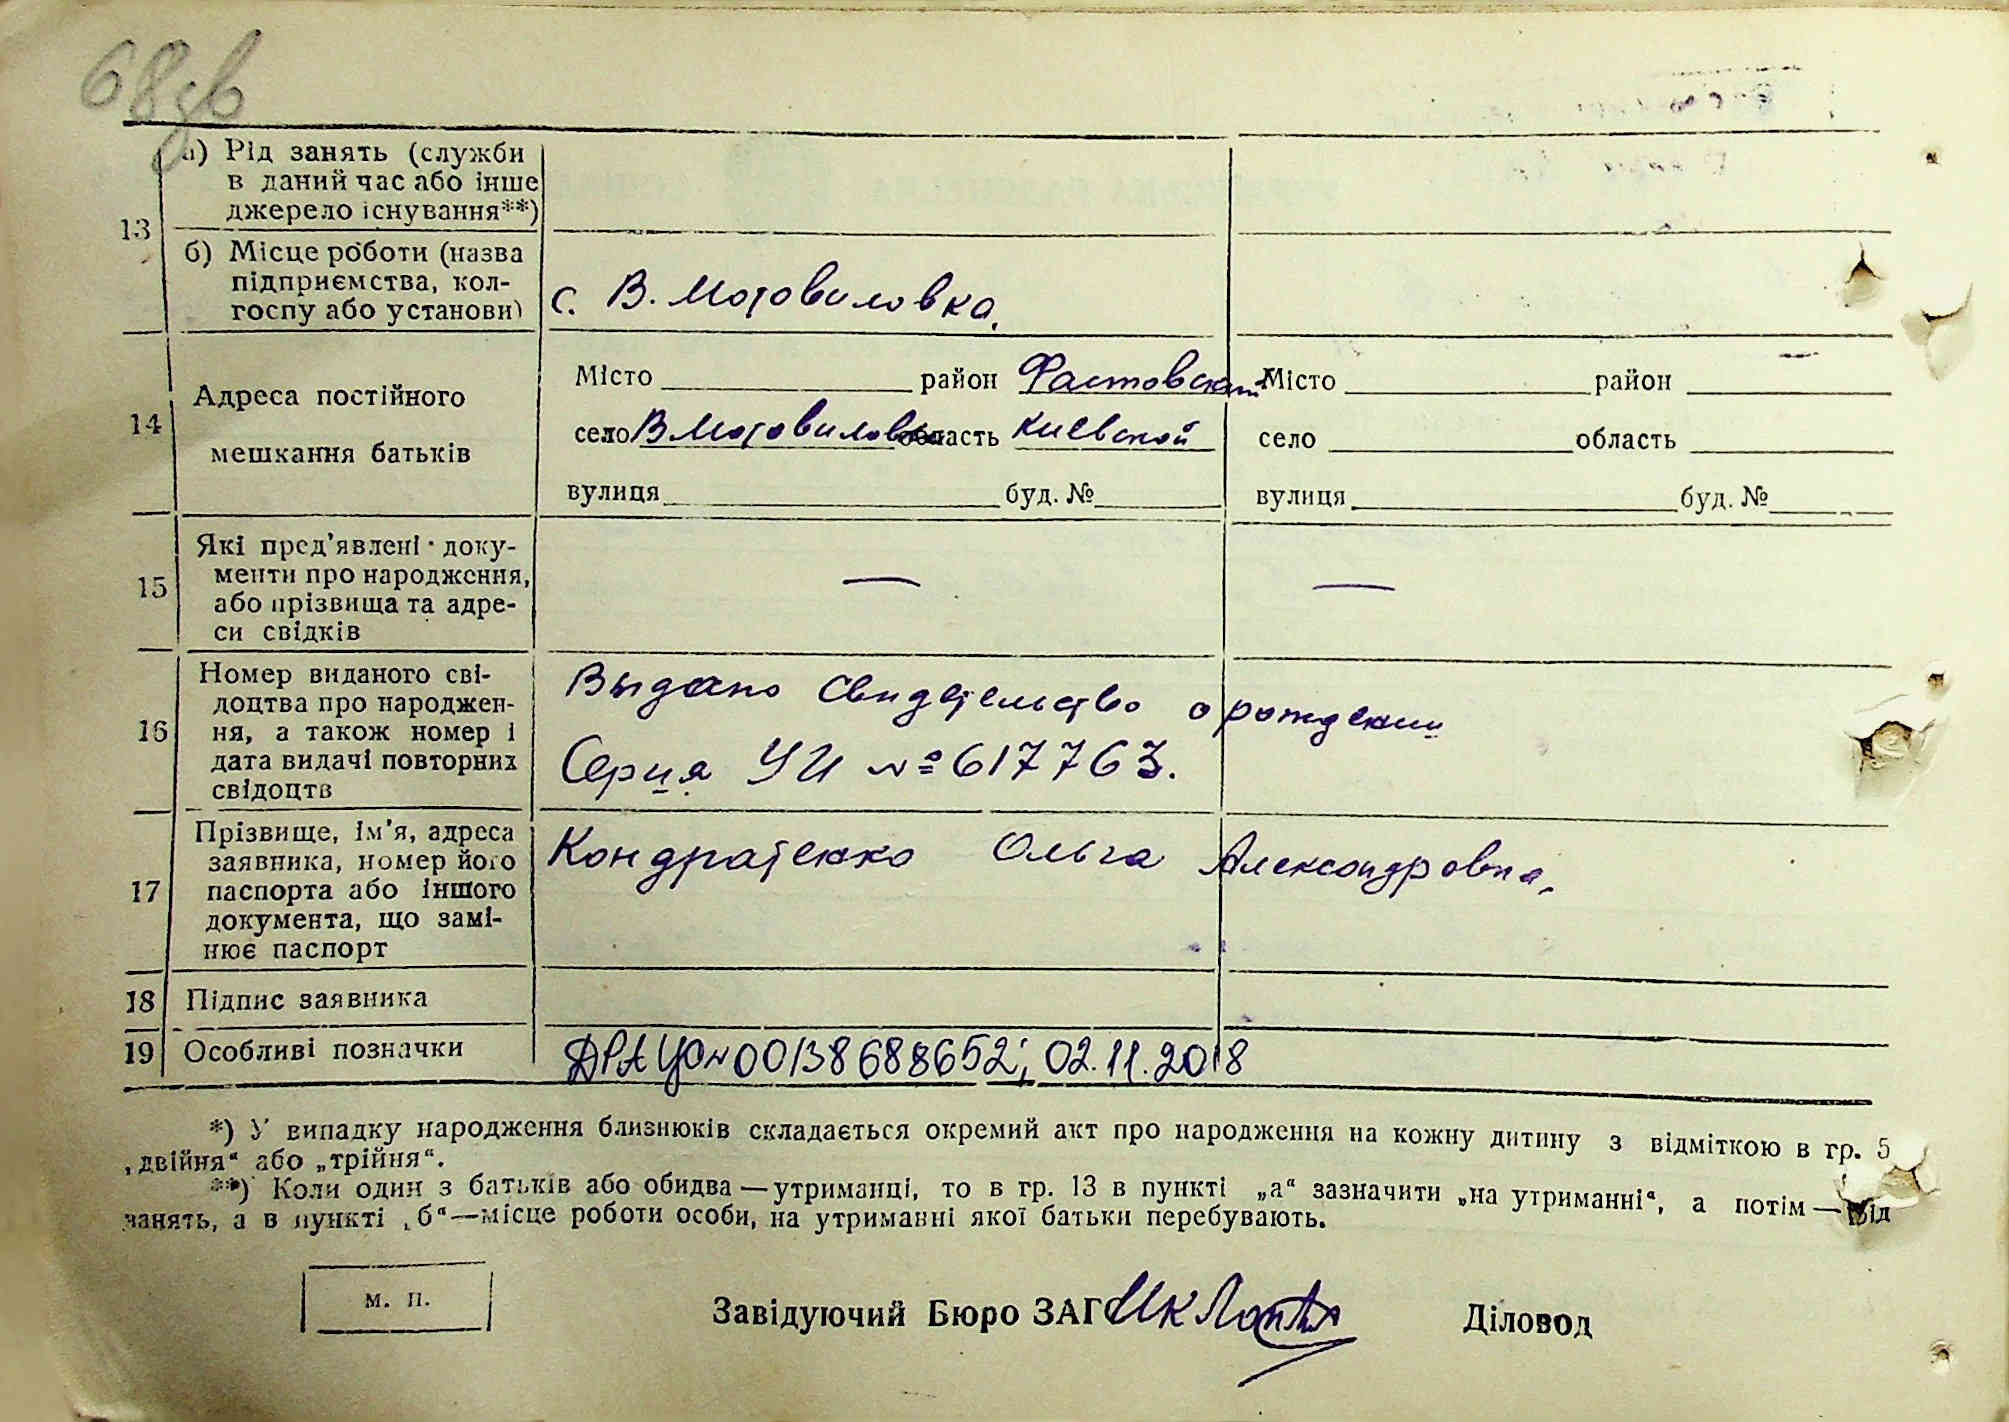 68зв
13
а) Рід занять (служби
в даний час або інше
джерело існування**)
б) Місце роботи (назва
підприємства, кол-
госпу або установи)
с. В. Мотовиловка.
14
Адреса постійного
мешкання батьків
Місто район Фастовский
село В Мотовиловка область Киевской
вулиця буд. №
Місто район
село область
вулиця буд. №
15
Які пред'явлені доку-
менти про народження,
або прізвища та адре-
си свідків
—
—
16
Номер виданого сві-
доцтва про народжен-
ня, а також номер і
дата видачі повторних
свідоцтв
Выдано свидетельство о рождении
Серия УИ № 617763.
17
Прізвище, ім'я, адреса
заявника, номер його
паспорта або іншого
документа, що замі-
нює паспорт
Кондратенко Ольга Александровна.
18 Підпис заявника
19 Особливі позначки
ДРАЦО № 00138688652; 02.11.2018
*) У випадку народження близнюків складається окремий акт про народження на кожну дитину з відміткою в гр. 5
„двійня“ або „трійня“.
**) Коли один з батьків або обидва—утриманці, то в гр. 13 в пункті „а“ зазначити „на утриманні“, а потім—рід
занять, а в пункті „б“—місце роботи особи, на утриманні якої батьки перебувають.
М. П.
Завідуючий Бюро ЗАГС
Діловод